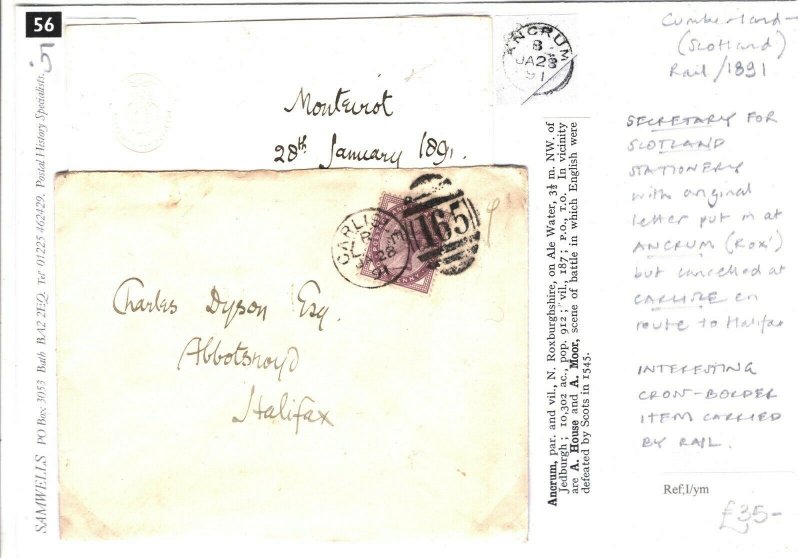 56
SAMWELLS PO Box 3053 Bath BA2 2EQ. Tel 01225 462429. Postal History Specialists.
Monteviot
28th January 1891.
ANCRUM
B
JA 28
91
CARLISLE
JA 28
91
165
Charles Dyson Esq.
Abbotsroyd
Halifax
Ancrum, par. and vil., N. Roxburghshire, on Ale Water, 3½ m. NW. of
Jedburgh; 10,302 ac., pop. 912; vil., 187; P.O., T.O. In vicinity
are A. House and A. Moor, scene of battle in which English were
defeated by Scots in 1545.
Cumberland-
(Scotland)
Rail/1891
SECRETARY FOR
SCOTLAND
STATIONERY
with original
letter put in at
ANCRUM (Rox')
but cancelled at
CARLISLE en
route to Halifax
INTERESTING
CROSS-BORDER
ITEM CARRIED
BY RAIL.
Ref;I/ym
£35-